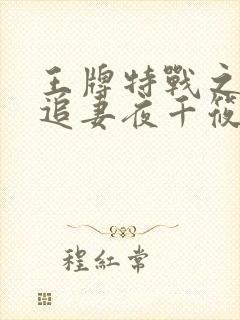 王牌特戰之
追妻夜千筱
程紅常